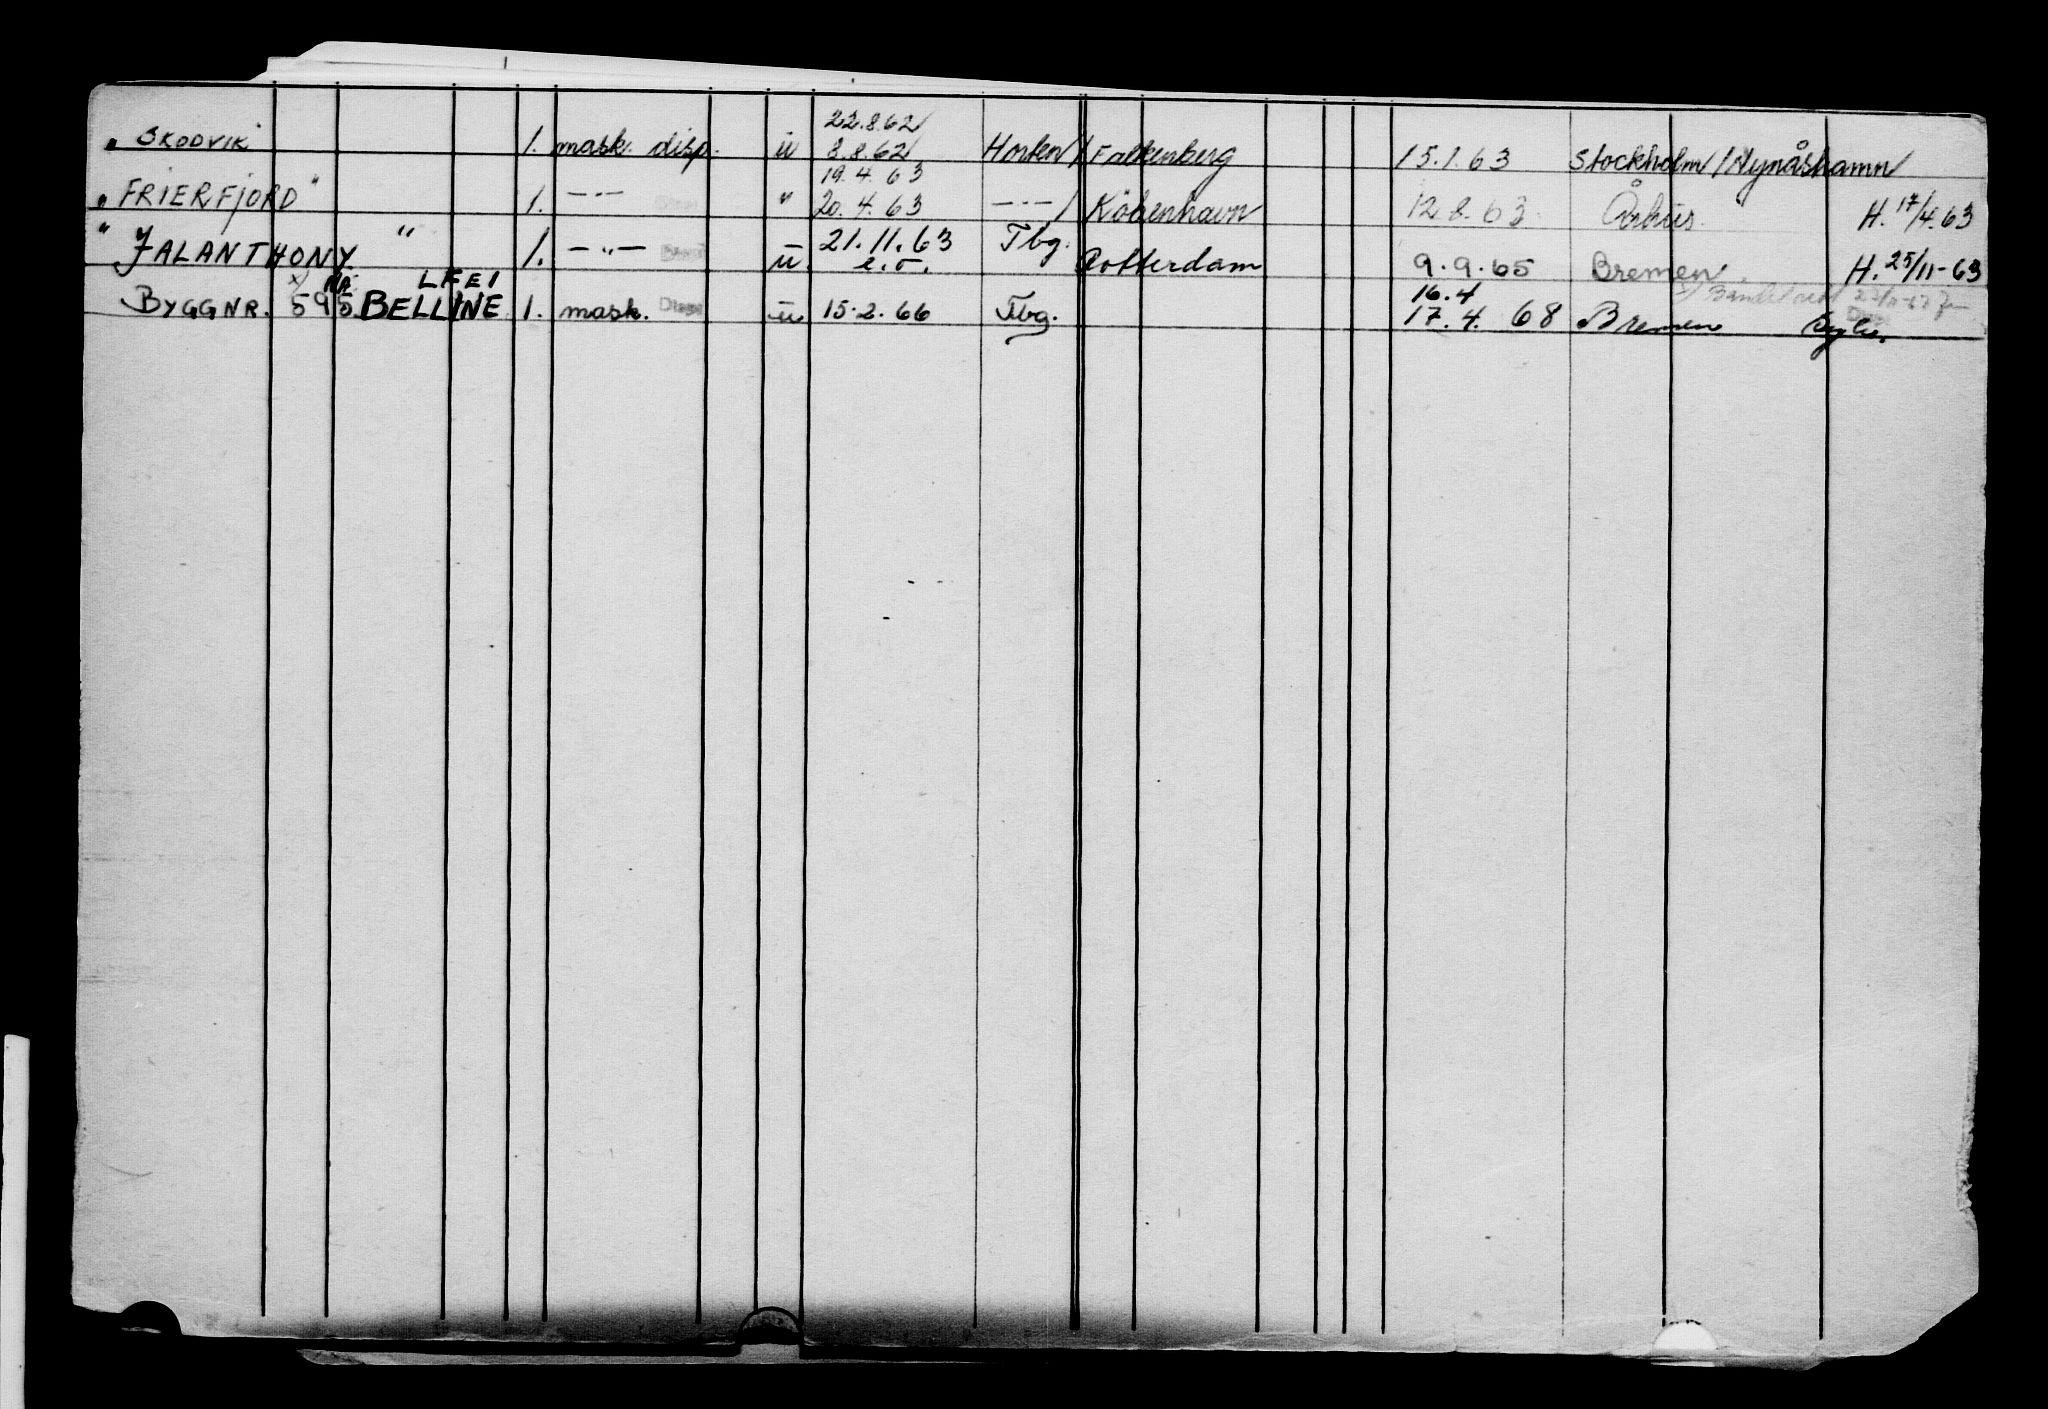 22.8.62/
„ SKODVIK" 1. mask. disp. ü 8.8.62/ Horten / Falkenberg 15.1.63 Stockholm / Nynäshamn
19.4.63
„ FRIERFJORD" 1. — " — " 20.4.63 — " — / Köbenhavn 12.8.63. Århus. H. 17/4.63
" JALANTHONY " 1. — " — ü. 21.11.63 Tbg. Rotterdam 9.9.65 Bremen. H. 25/11-63
e.o.
x) LFEI 16.4
BYGGNR. 595 BELLINE 1. mask. Disp ü 15.2.66 Tbg. 17.4. 68 Bremen